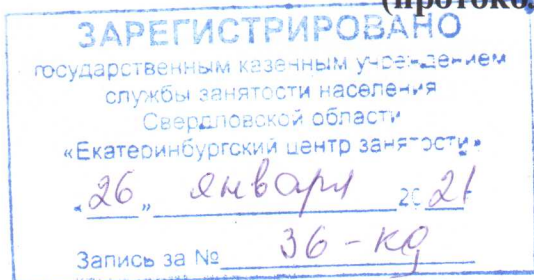 (протоко
ЗАРЕГИСТРИРОВАНО
государственным казенным учреждением
службы занятости населения
Свердловской области
«Екатеринбургский центр занятости»
«26» января 2021
Запись за № 36-кд